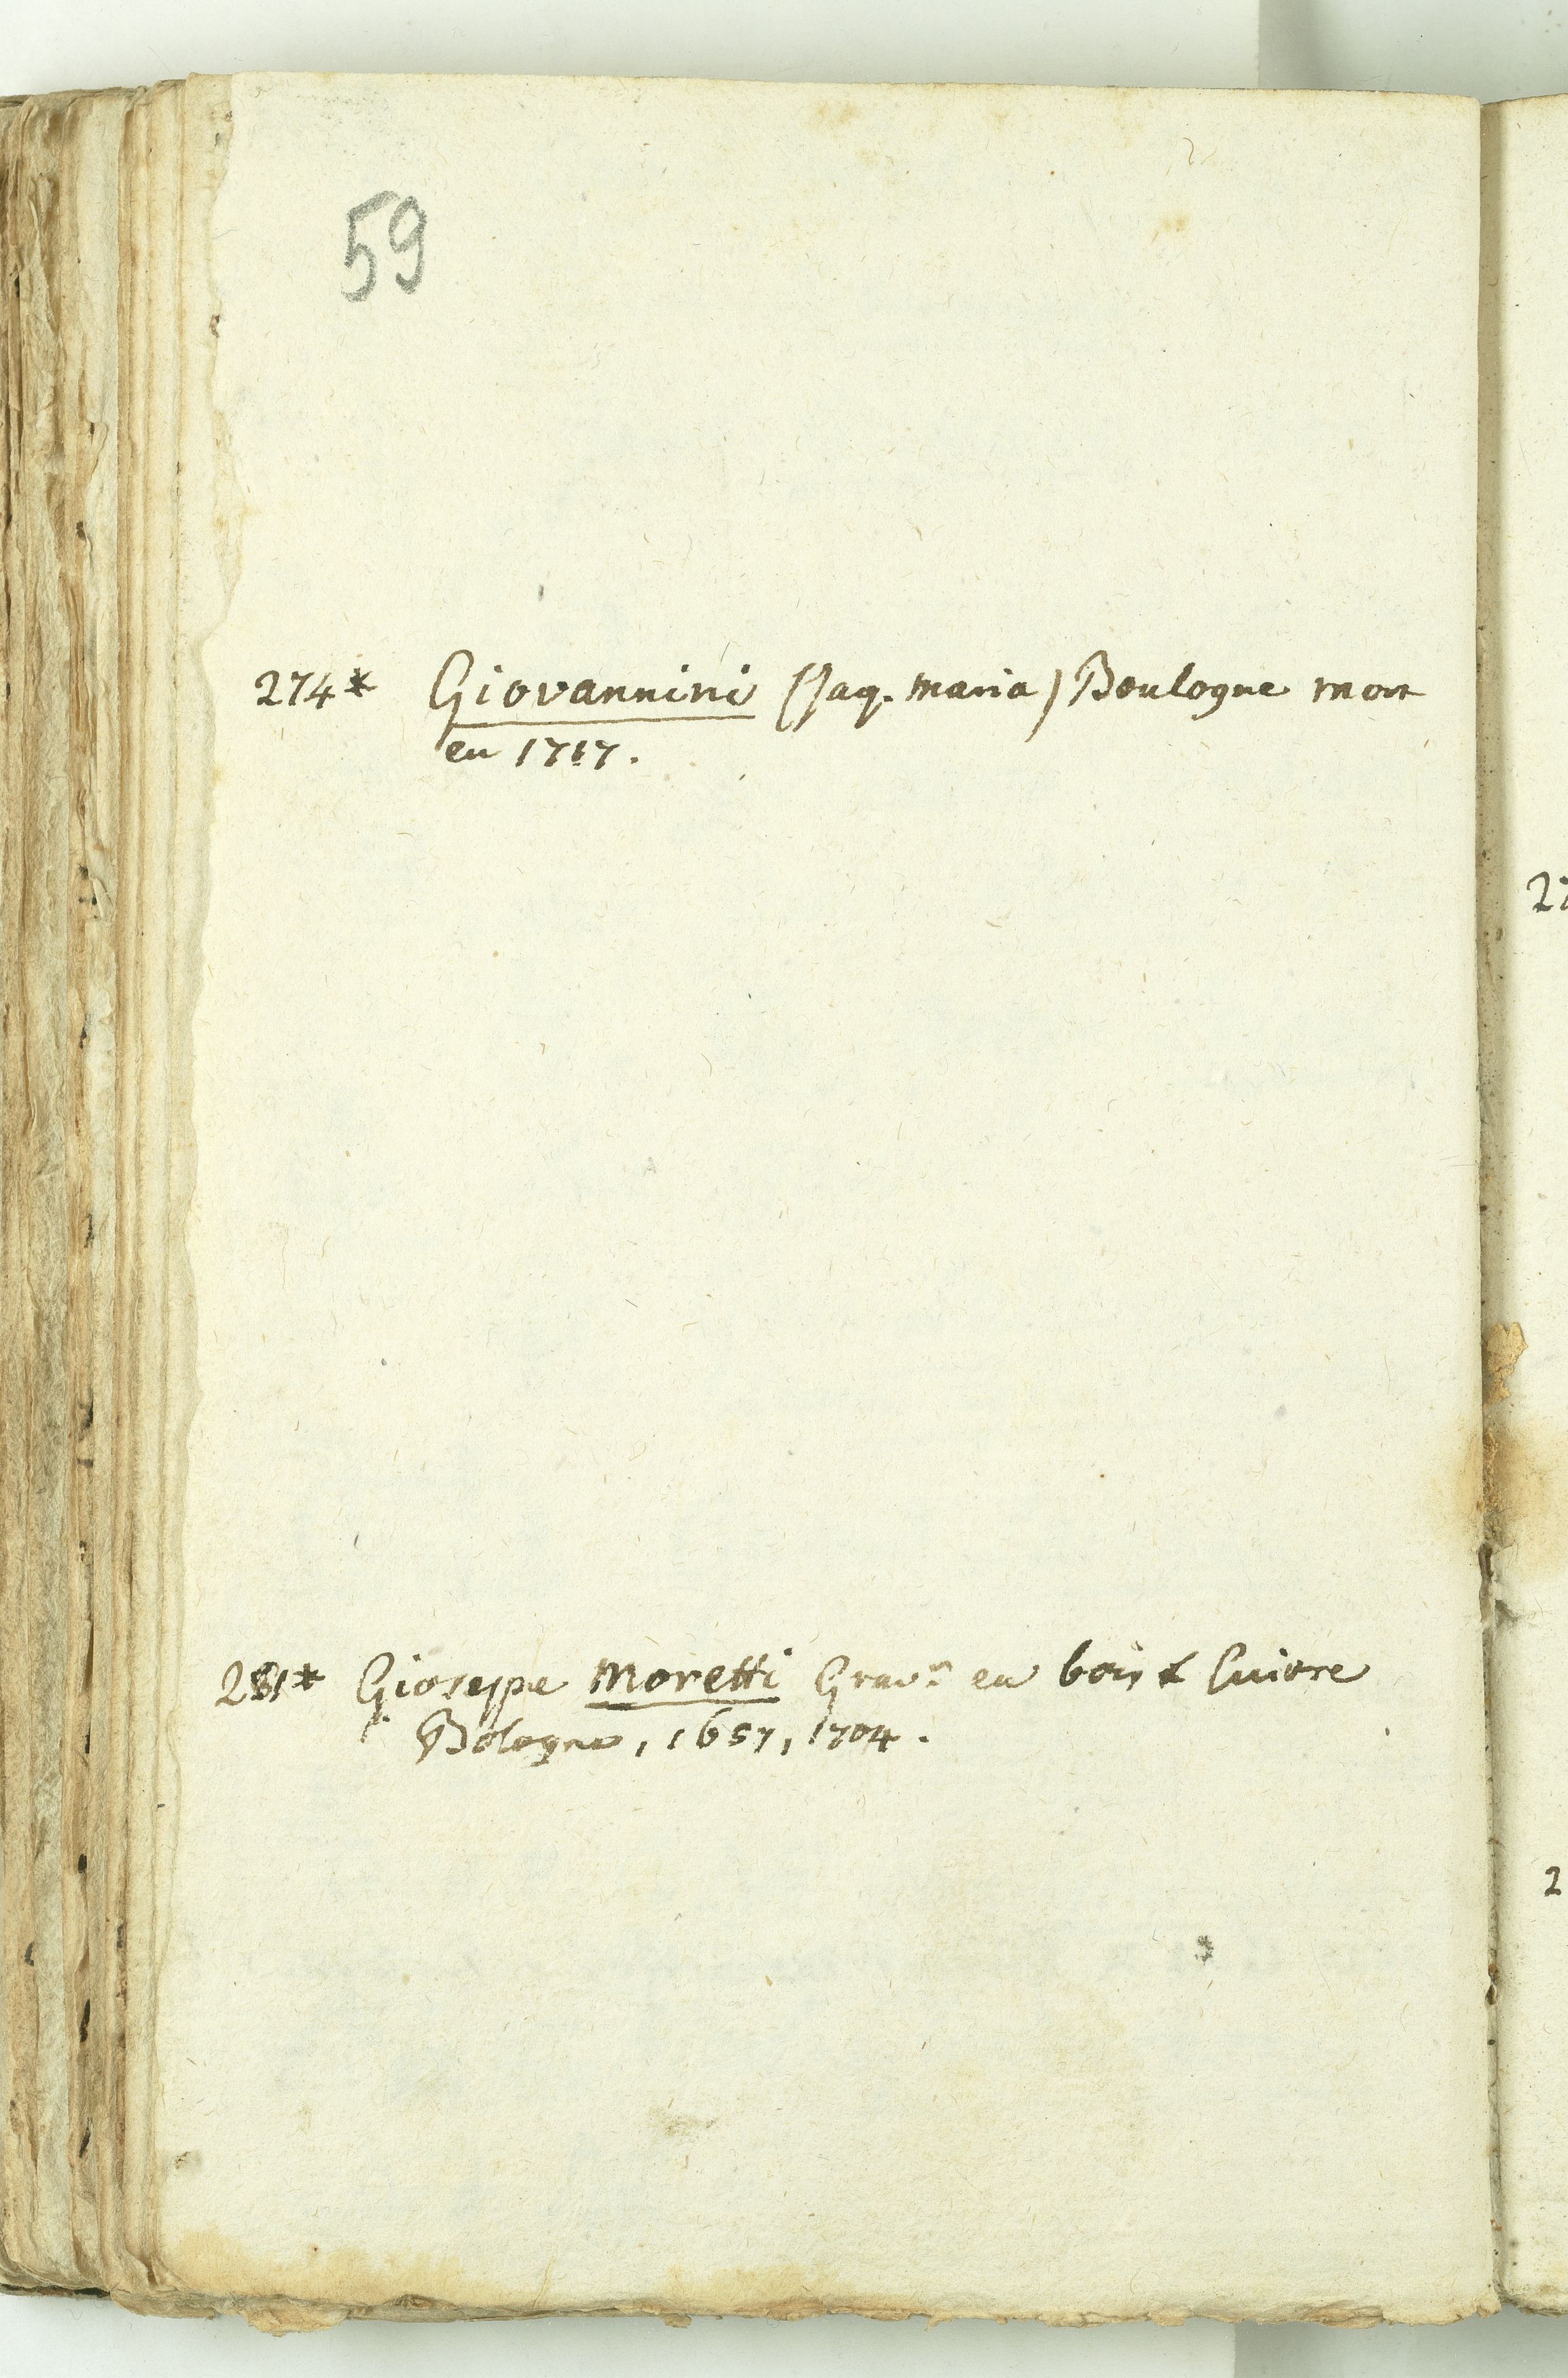 59
274* Giovannini (Jaq. Maria) Boulogne mort
en 1717.
281* Gioseppe Moretti Gravr. en bois & Cuivre
Bologna, 1657, 1704.
27
2